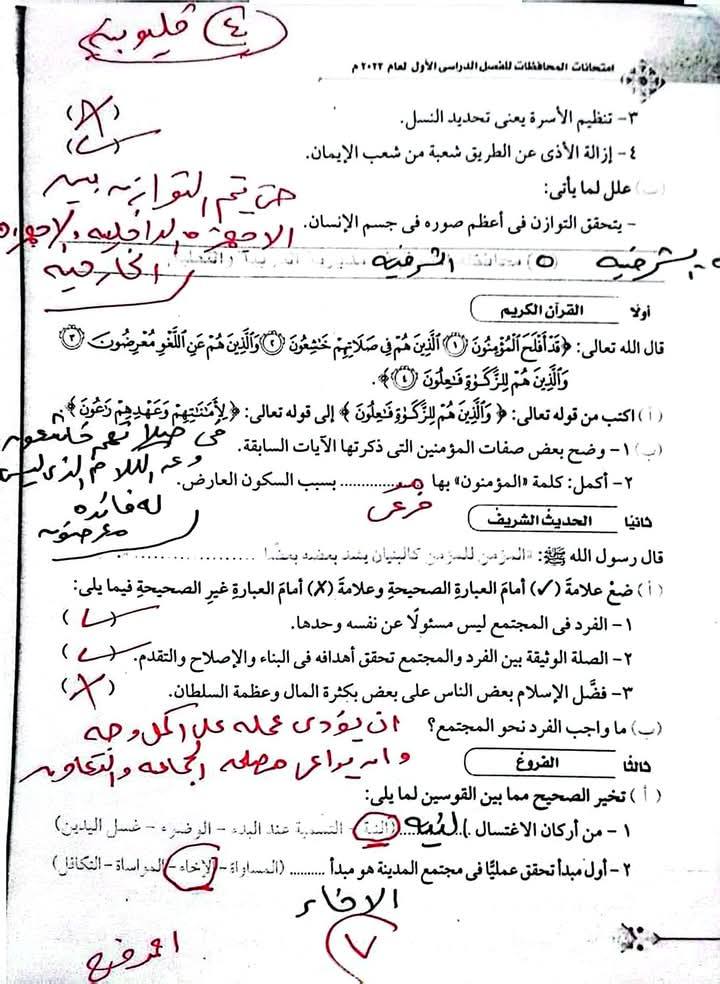 ٤ قليوبية
امتحانات المحافظات للفصل الدراسى الأول لعام ٢٠٢٢ م
٣- تنظيم الأسرة يعنى تحديد النسل. (✗)
٤- إزالة الأذى عن الطريق شعبة من شعب الإيمان. (✓)
(ب) علل لما يأتى:
حتى يتم التوازن بين
- يتحقق التوازن فى أعظم صوره فى جسم الإنسان.
الاجهزة الداخلية والاجهزة
الخارجية
الشرقية ٥ الشرقية
أولا القرآن الكريم
قال الله تعالى: ﴿قَدْ أَفْلَحَ الْمُؤْمِنُونَ ١ الَّذِينَ هُمْ فِى صَلَاتِهِمْ خَاشِعُونَ ٢ وَالَّذِينَ هُمْ عَنِ اللَّغْوِ مُعْرِضُونَ ٣
وَالَّذِينَ هُمْ لِلزَّكَوٰةِ فَاعِلُونَ ٤﴾.
(أ) اكتب من قوله تعالى: ﴿وَالَّذِينَ هُمْ لِلزَّكَوٰةِ فَاعِلُونَ﴾ إلى قوله تعالى: ﴿لِأَمَانَاتِهِمْ وَعَهْدِهِمْ رَاعُونَ﴾.
فى صلاتهم خاشعون
(ب) ١- وضح بعض صفات المؤمنين التى ذكرتها الآيات السابقة.
وعن الكلام الذى ليس
٢- أكمل: كلمة «المؤمنون» بها مد .............. بسبب السكون العارض.
فرعى
له فائدة
معرضون
ثانيا الحديث الشريف
قال رسول الله ﷺ: «المؤمن للمؤمن كالبنيان يشد بعضه بعضًا ..................
(أ) ضعْ علامةَ (✓) أمامَ العبارةِ الصحيحةِ وعلامةَ (✗) أمامَ العبارةِ غيرِ الصحيحةِ فيما يلى:
١- الفرد فى المجتمع ليس مسئولًا عن نفسه وحدها. (✓)
٢- الصلة الوثيقة بين الفرد والمجتمع تحقق أهدافه فى البناء والإصلاح والتقدم. (✓)
٣- فضَّل الإسلام بعض الناس على بعض بكثرة المال وعظمة السلطان. (✗)
(ب) ما واجب الفرد نحو المجتمع؟ ان يؤدى عمله على اكمل وجه
وان يراعى مصلحة الجماعة والتعاون
ثالثا الفروع
(أ) تخير الصحيح مما بين القوسين لما يلى:
١- من أركان الاغتسال .............. النية (النية - التسمية عند البدء - الوضوء - غسل اليدين)
٢- أول مبدأ تحقق عمليًّا فى مجتمع المدينة هو مبدأ .......... (المساواة - الإخاء - المواساة - التكافل)
الاخاء
٧
احمد فرج